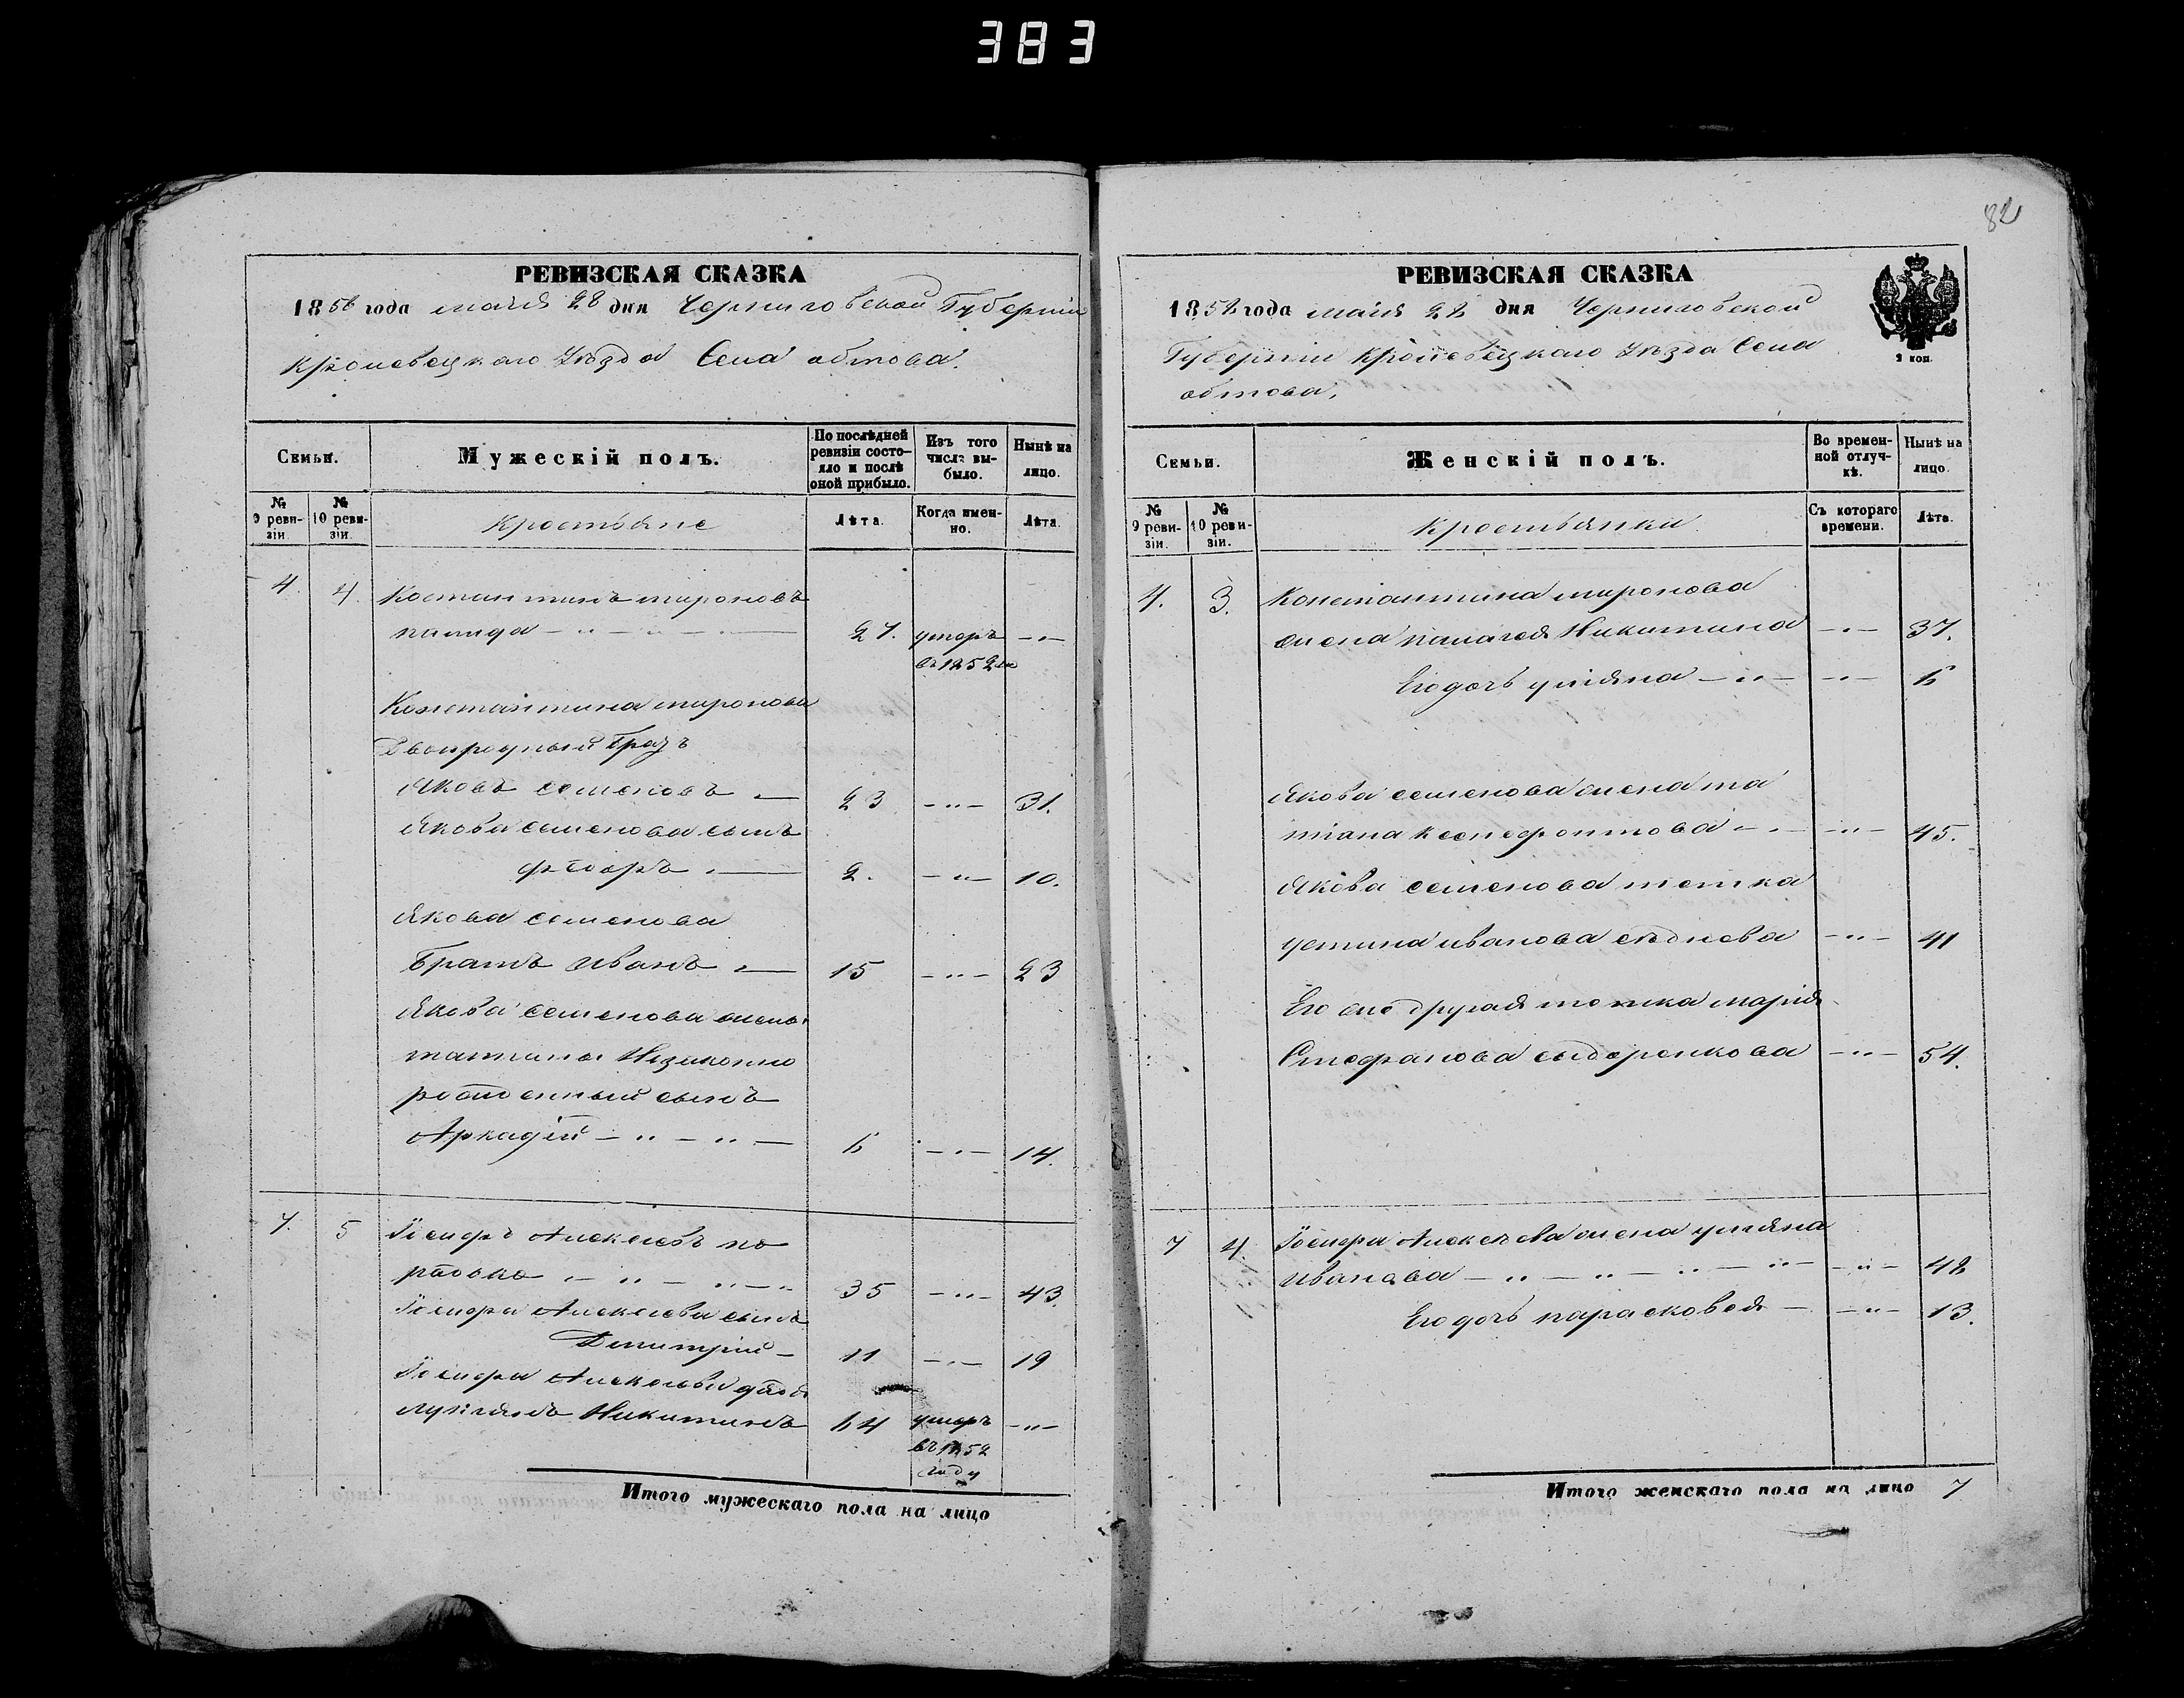 383
82
РЕВИЗСКАЯ СКАЗКА
1858 года маія 28 дня Черниговской Губерніи
Кролевецкаго Уѣзда Села обтова.
Семьи.
Мужескій полъ.
По послѣдней ревизіи состояло и послѣ оной прибыло.
Изъ того числа выбыло.
Нынѣ на лицо.
№ 9 ревизіи.
№ 10 ревизіи.
Крестьяне
Лѣта.
Когда именно.
Лѣта.
4. 4. Костантинъ мироновъ
27. умеръ
въ 1852
Константина миронова
Двоюродный Братъ
Яковъ семеновъ 23 31.
Якова семенова сынъ
Федоръ 2. 10.
Якова семенова
Братъ иванъ 15 23
Якова семенова жены
татианы Незаконно
рожденный сынъ
Аркадій 6 14.
7. 5 Іосифъ Алексеевъ
35 43.
Іосифа Алексеева сынъ
Димитрій 11 19
Іосифа Алексеева дядя
лукіянъ Никитинъ 64 умеръ
въ 1852
году
Итого мужескаго пола на лицо
РЕВИЗСКАЯ СКАЗКА
1858 года маія 28 дня Черниговской
Губерніи Кролевецкаго Уѣзда Села
обтова.
2 коп.
Семьи.
Женскій полъ.
Во временной отлучкѣ.
Нынѣ на лицо.
№ 9 ревизіи.
№ 10 ревизіи.
Крестьянки
Съ котораго времени.
Лѣта.
4. 3. Константина миронова
жена палагея Никитина 37.
Его дочь уліяна 6
Якова семенова жена та
тіана ксенофонтова 45.
Якова семенова тетка
устина иванова 41
Его же другая тетка марія
Стефанова сидоренкова 54.
7 4. Іосифа Алексѣева жена уліяна
иванова 48
Его дочь парасковея 13.
Итого женскаго пола на лицо 7